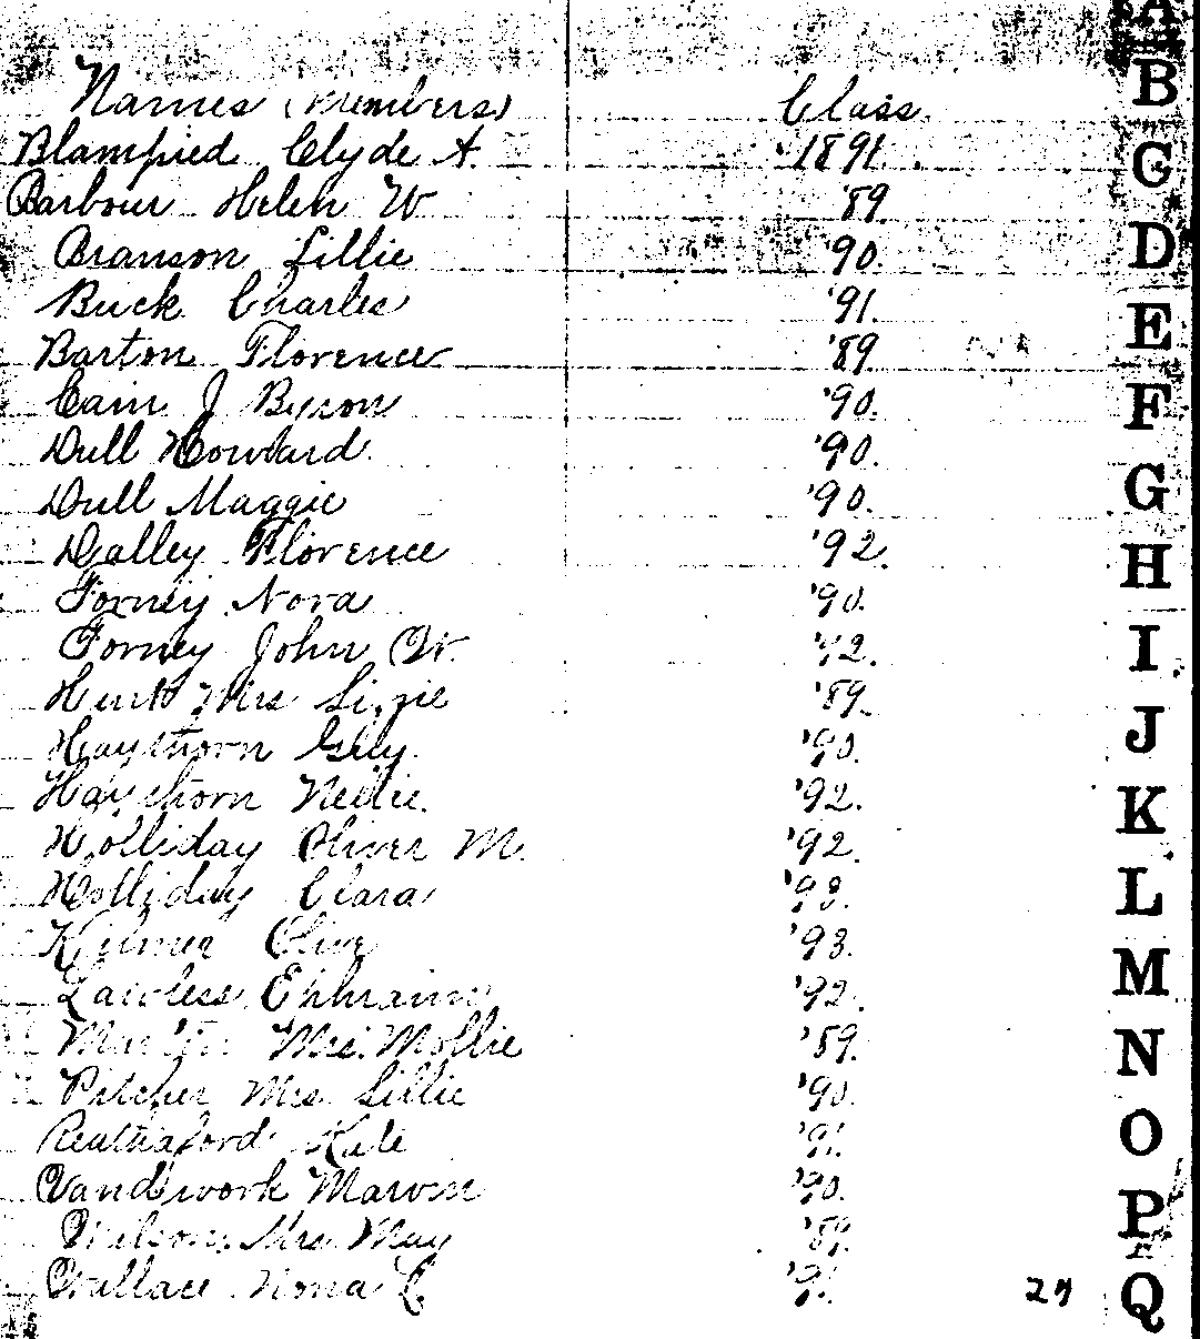 A
Names (Members) Class
B
Blampied Clyde A. 1891.
C
Barbour Helen W '89.
Branson Lillie '90.
D
Buck Charles '91.
E
Barton Florence '89.
Cain J Byron '90.
F
Dull Howard. '90.
Dull Maggie '90.
G
Dalley Florence '92.
H
Forney Nora '90.
Forney John W. '92.
I
Mrs Lizzie '89.
J
Haythorn '90.
Haythorn Nellie. '92.
K
Holliday Oliver M. '92.
Holliday Clara '93.
L
Kilmer Olive '93.
Lawless Ephraim '92.
M
Martin Mrs. Mollie '89.
N
Pitcher Mrs Lillie '90.
Kate '91.
O
Vandivork Marvin '90.
P
Wilson, Mrs May '89.
Wallace Nona L. '91.
27
Q